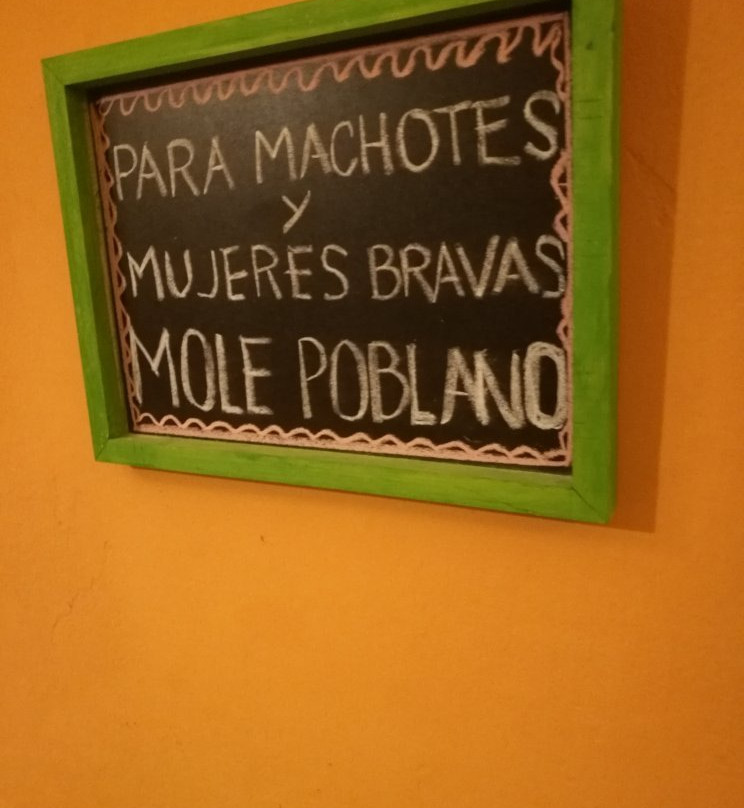 PARA MACHOTES
Y
MUJERES BRAVAS
MOLE POBLANO